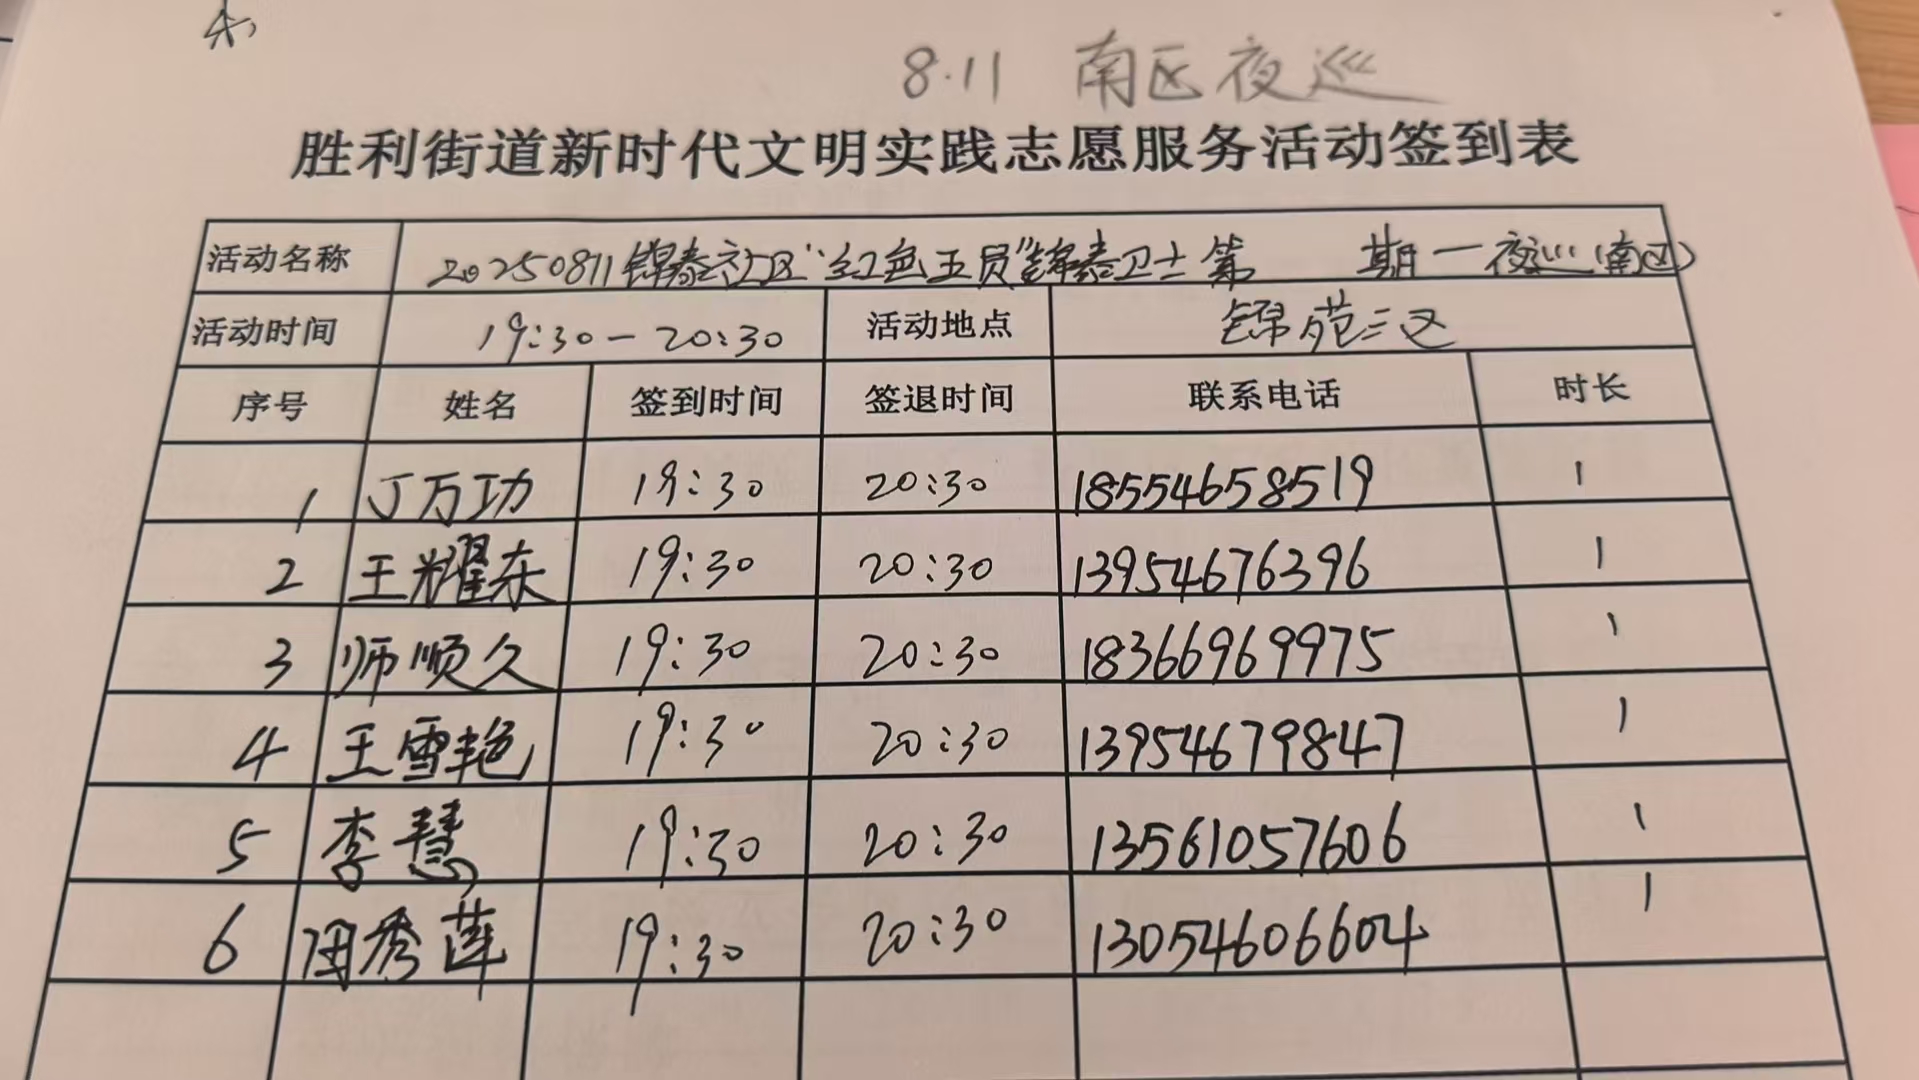 8.11 南区夜巡
胜利街道新时代文明实践志愿服务活动签到表
活动名称 20250811锦泰社区"红色五员"锦泰卫士第 期一夜巡(南区)
活动时间 19:30-20:30 活动地点 锦苑三区
序号 姓名 签到时间 签退时间 联系电话 时长
1 丁万功 19:30 20:30 18554658519 1
2 王耀东 19:30 20:30 13954676396 1
3 师顺久 19:30 20:30 18366969975 1
4 王雪艳 19:30 20:30 13954679847 1
5 李慧 19:30 20:30 13561057606 1
6 田秀莲 19:30 20:30 13054606604 1